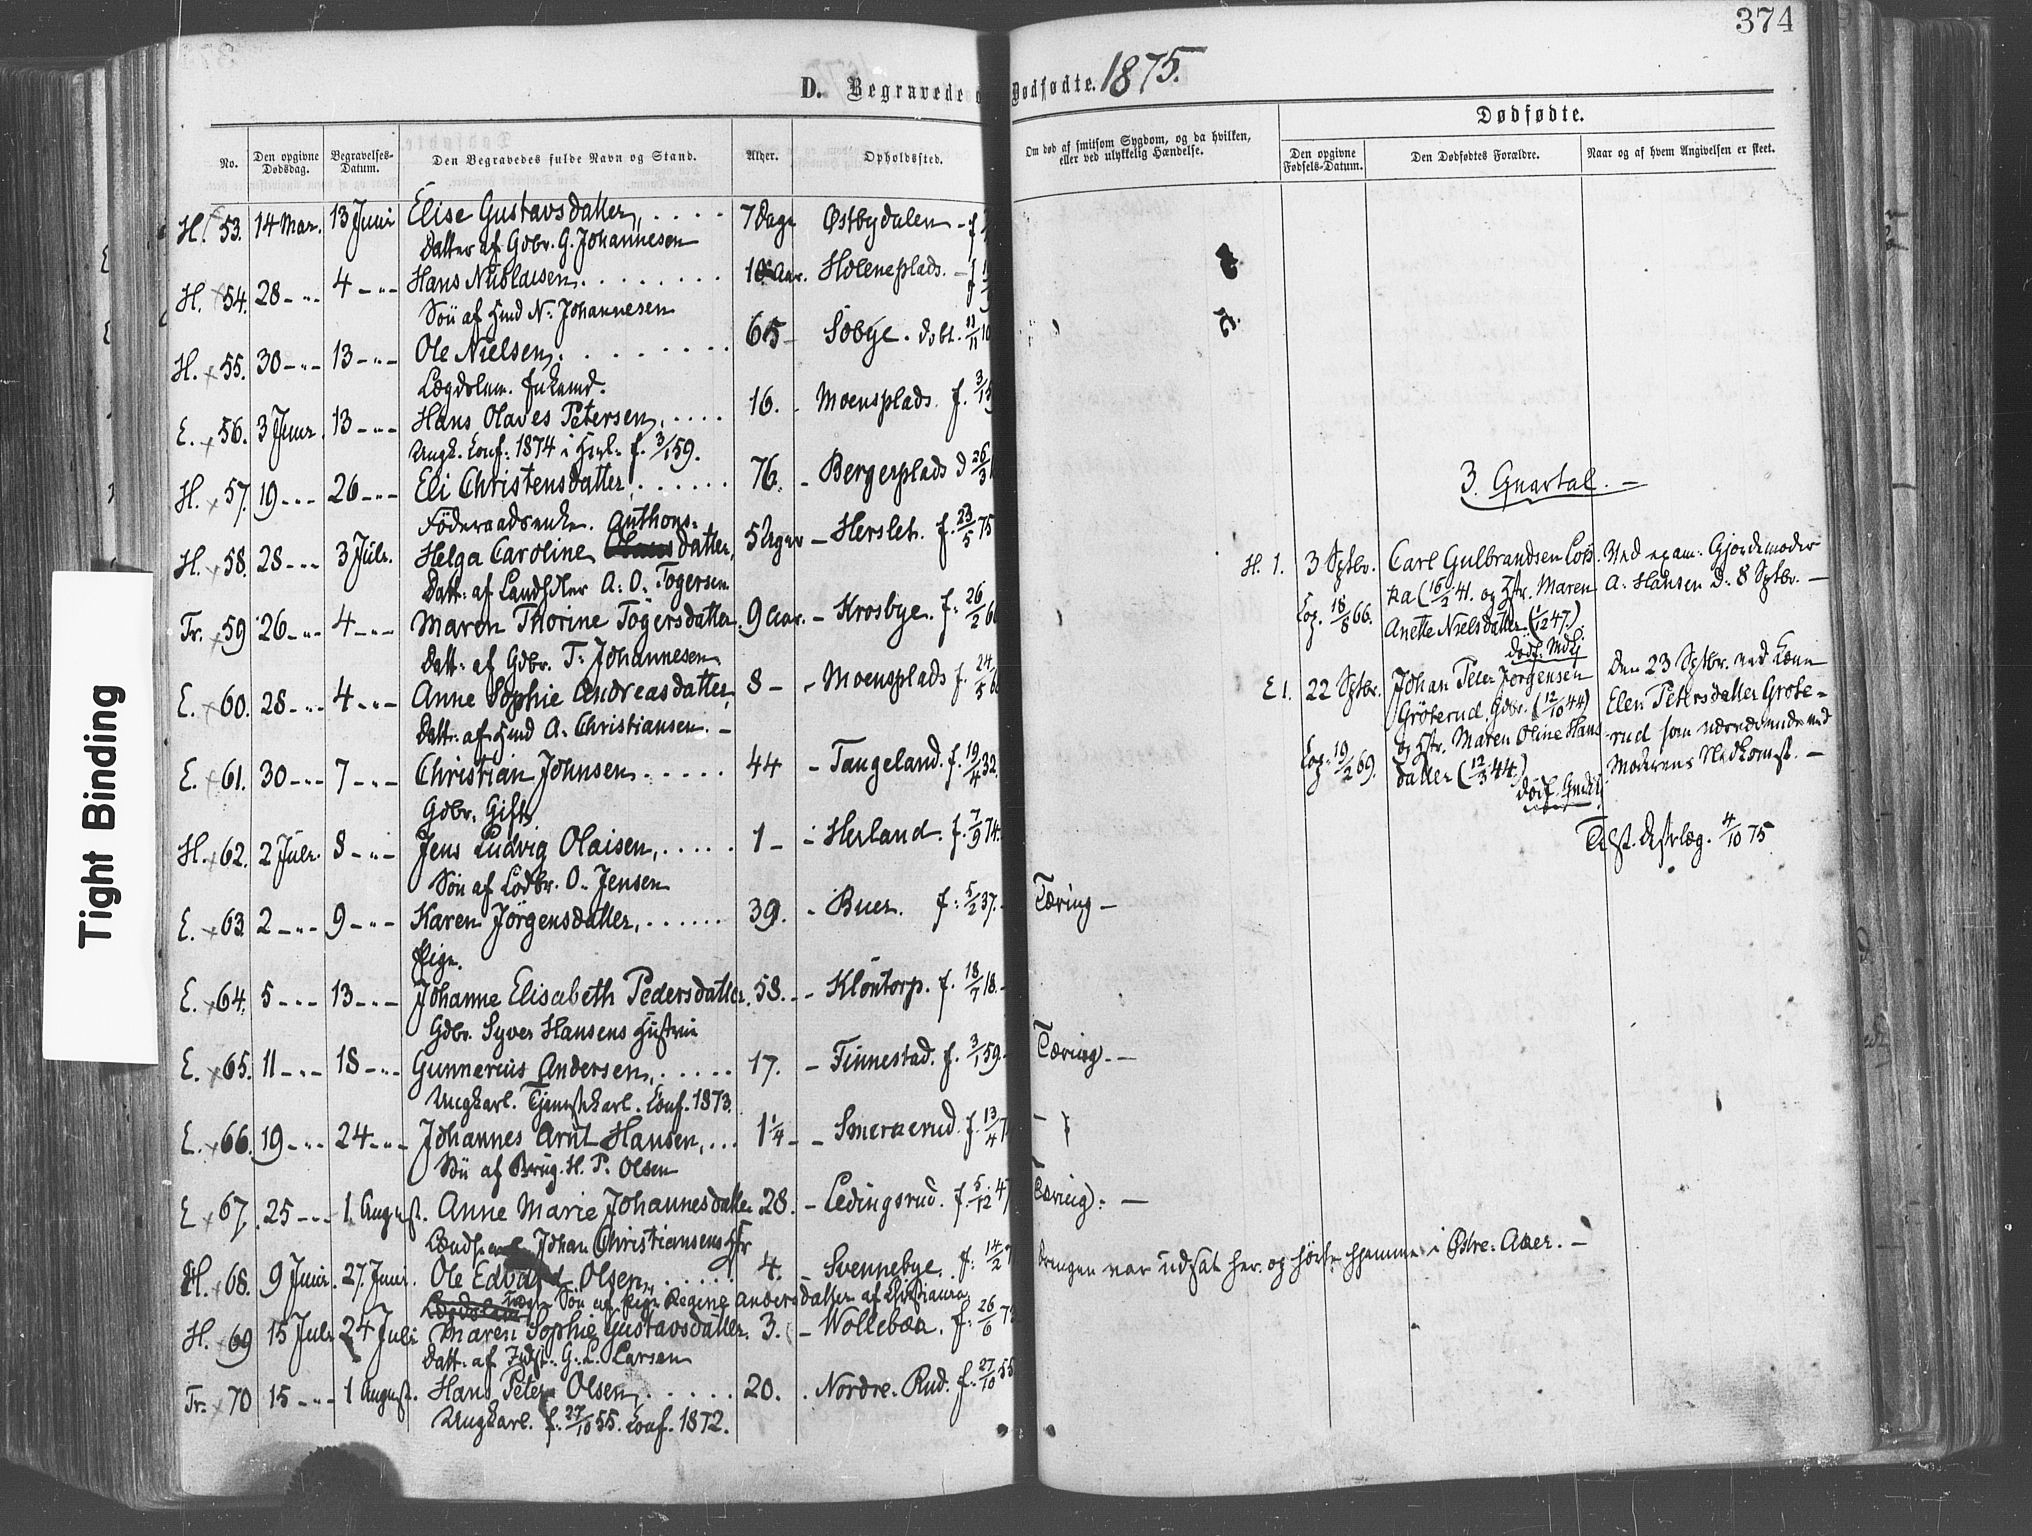 374
D. Begravede o Dødfødte. 1875.
No. Den opgivne Dødsdag. Begravelses-Datum. Den Begravedes fulde Navn og Stand. Alder. Opholdssted.
Om død af smitsom Sygdom, og da hvilken, eller ved ulykkelig Hændelse.
Dødfødte.
Den opgivne Fødsels-Datum. Den Dødfødtes Forældre. Naar og af hvem Angivelsen er skeet.
H. 53. 14 Mar. 13 Juni Elise Gustavsdatter, 7 Dage Østbydalen - f
Datter af Gdbr. G. Johannesen
H. 54. 28 - " - 4 - " - Hans Nicolaisen. 10 Aar. Holeneplads. - f
Sön af Hmd N. Johannesen
H. x 55. 30 - " - 13 - " - Ole Nielsen, 65 - Sobye. døbt. 11/11 10
Lægdslem. Enkemd.
E. x 56. 3 Juni. 13 - " - Hans Olaves Petersen, 16. - Moensplads. f. 3/1 59
Ungk. Conf. 1874 i f. 3/1 59.
H. x 57. 19 - " - 26 - " - Eli Christensdatter, 76. - Bergerplads d 26/3
Föderaadsenke. Anthons-
H. x 58. 28 - " - 3 Juli. Helga Caroline datter, 5 Uger - Herslet. f. 23/5 75
Datt. af Landh A. O. Togersen
Tr. x 59 26 - " - 4 - " - Maren Thorine Togersdatter. 9 Aar. - Krosbye. f. 26/2 66
Datt. af Gdbr. T. Johannesen
E. x 60. 28 - " - 4 - " - Anne Sophie Andreasdatter, 8 - - Moensplads f. 24/5 66
Datt. af Hmd A. Christiansen. -
E. x 61. 30 - " - 7 - " - Christian Johnsen 44 - Tangeland. f. 19/4 32.
Gdbr. Gift
H. x 62. 2 Juli. 8 - " - Jens Ludvig Olaisen, 1 - - Herland. f. 7/9 74.
Sön af Lodbr. O. Jensen
E. x 63. 2 - " - 9 - " - Karen Jörgensdatter, 39. - Buer. f. 5/2 37. - Tæring -
Pige.
E. x 64. 5 - " - 13 - " - Johanne Elisabeth Pedersdatter. 58. - - Klöntorp. f. 18/7 18.
Gdbr. Syver Hansens Hustru
E. x 65. 11 - " - 18 - " - Gunnerius Andersen, 17. - Tinnestad. f. 3/1 59. - Tæring. -
Ungkarl. Tjenestekarl. Conf. 1873.
E. x 66. 19 - " - 24 - " - Johannes Arnt Hansen, 1 1/4 - - Smerkerud. f. 13/4 7
Sön af Brug. H. P. Olsen
E x 67. 25 - " - 1 August. Anne Marie Johannesdatter 28. - Ledingsrud. f. 5/12 47 Tæring. -
Johan Christiansens
H. x 68. 9 Juni. 27 Juni. Ole Edvard Olsen, 4. - Svennebye. f. 14/2 7 Drengen var udsat her og hörte hjemme i Østre-Aker. -
Sön af Pige Regine Andersdatter af Christiania
H. x 69 15 Juli 24 Juli Maren Sophie Gustavsdatter. 3. - Wollebæk. f. 26/6 72
Datt. af Indst. G. L. Larsen
Tr. x 70 15 - " - 1 August. Hans Peter Olsen, 20. - Nordre-Rud. f. 27/10 55
Ungkarl. f. 27/10 55. Conf. 1872.
3. Quartal. -
H. 1. 3 Sptbr. Carl Gulbrandsen Ved exam. Gjordemoder
ka (16/2 41. og Hstr. Maren A. Hansen d. 8 Sptbr. -
18/8 66. Anette Nielsdatter (1/12 47).
dödf.
E 1. 22 Sptbr. Johan Peter Jorgensen Den 23 Sptbr. ved
Gröterud, Gdbr. (12/10 44) Elen Petersdatter Grote-
19/2 69. og Hstr. Maren Oline Hans- rud som nærværende ved
datter (12/3 44.) Moderens Nedkomst. -
dödf.
4/10 75
Tight Binding